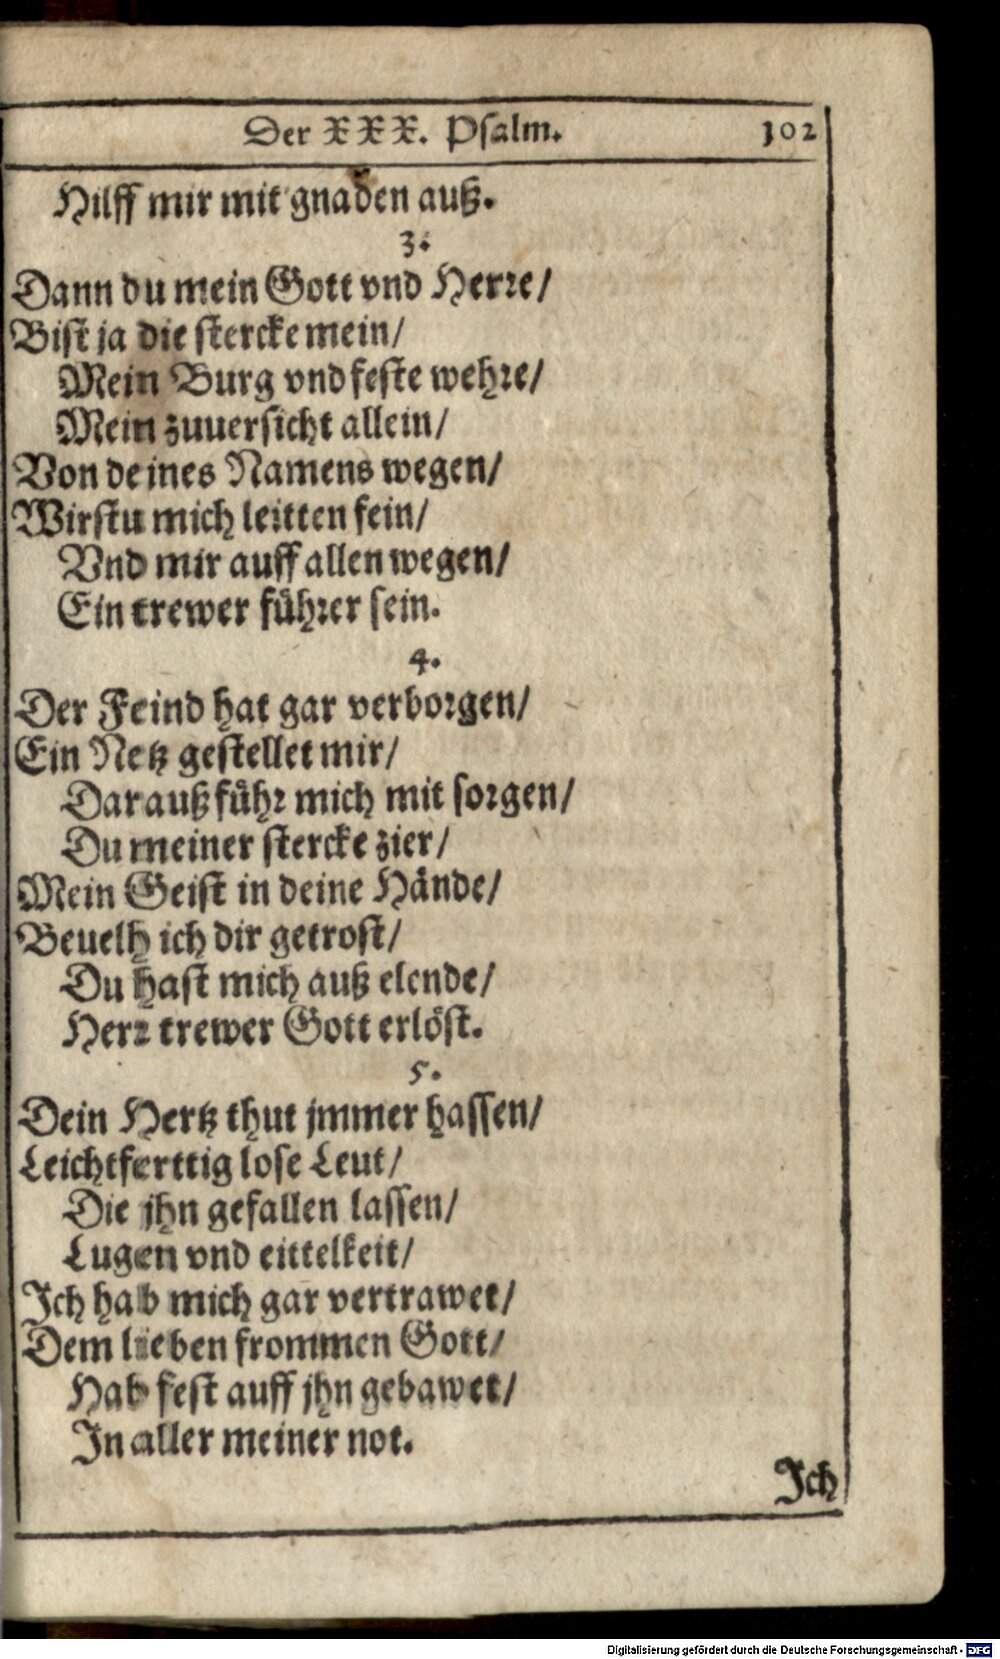 Der XXX. Psalm. 102
Hilff mir mit gnaden auß.
3.
Dann du mein Gott vnd Herre/
Bist ja die stercke mein/
Mein Burg vnd feste wehre/
Mein zuuersicht allein/
Von deines Namens wegen/
Wirstu mich leitten fein/
Vnd mir auff allen wegen/
Ein trewer führer sein.
4.
Der Feind hat gar verborgen/
Ein Netz gestellet mir/
Darauß führ mich mit sorgen/
Du meiner stercke zier/
Mein Geist in deine Hände/
Beuelh ich dir getrost/
Du hast mich auß elende/
Herr trewer Gott erlöst.
5.
Dein Hertz thut jmmer hassen/
Leichtferttig lose Leut/
Die jhn gefallen lassen/
Lugen vnd eittelkeit/
Ich hab mich gar vertrawet/
Dem lieben frommen Gott/
Hab fest auff jhn gebawet/
In aller meiner not.
Ich
Digitalisierung gefördert durch die Deutsche Forschungsgemeinschaft - DFG